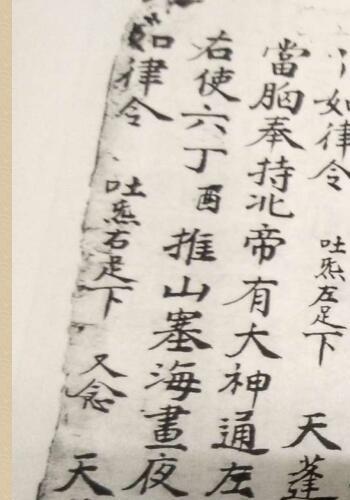 如律令 吐炁左足下 天蓬
當胸奉持北帝有大神通左
右使六丁酉推山塞海晝夜
如律令 吐炁右足下 又念 天